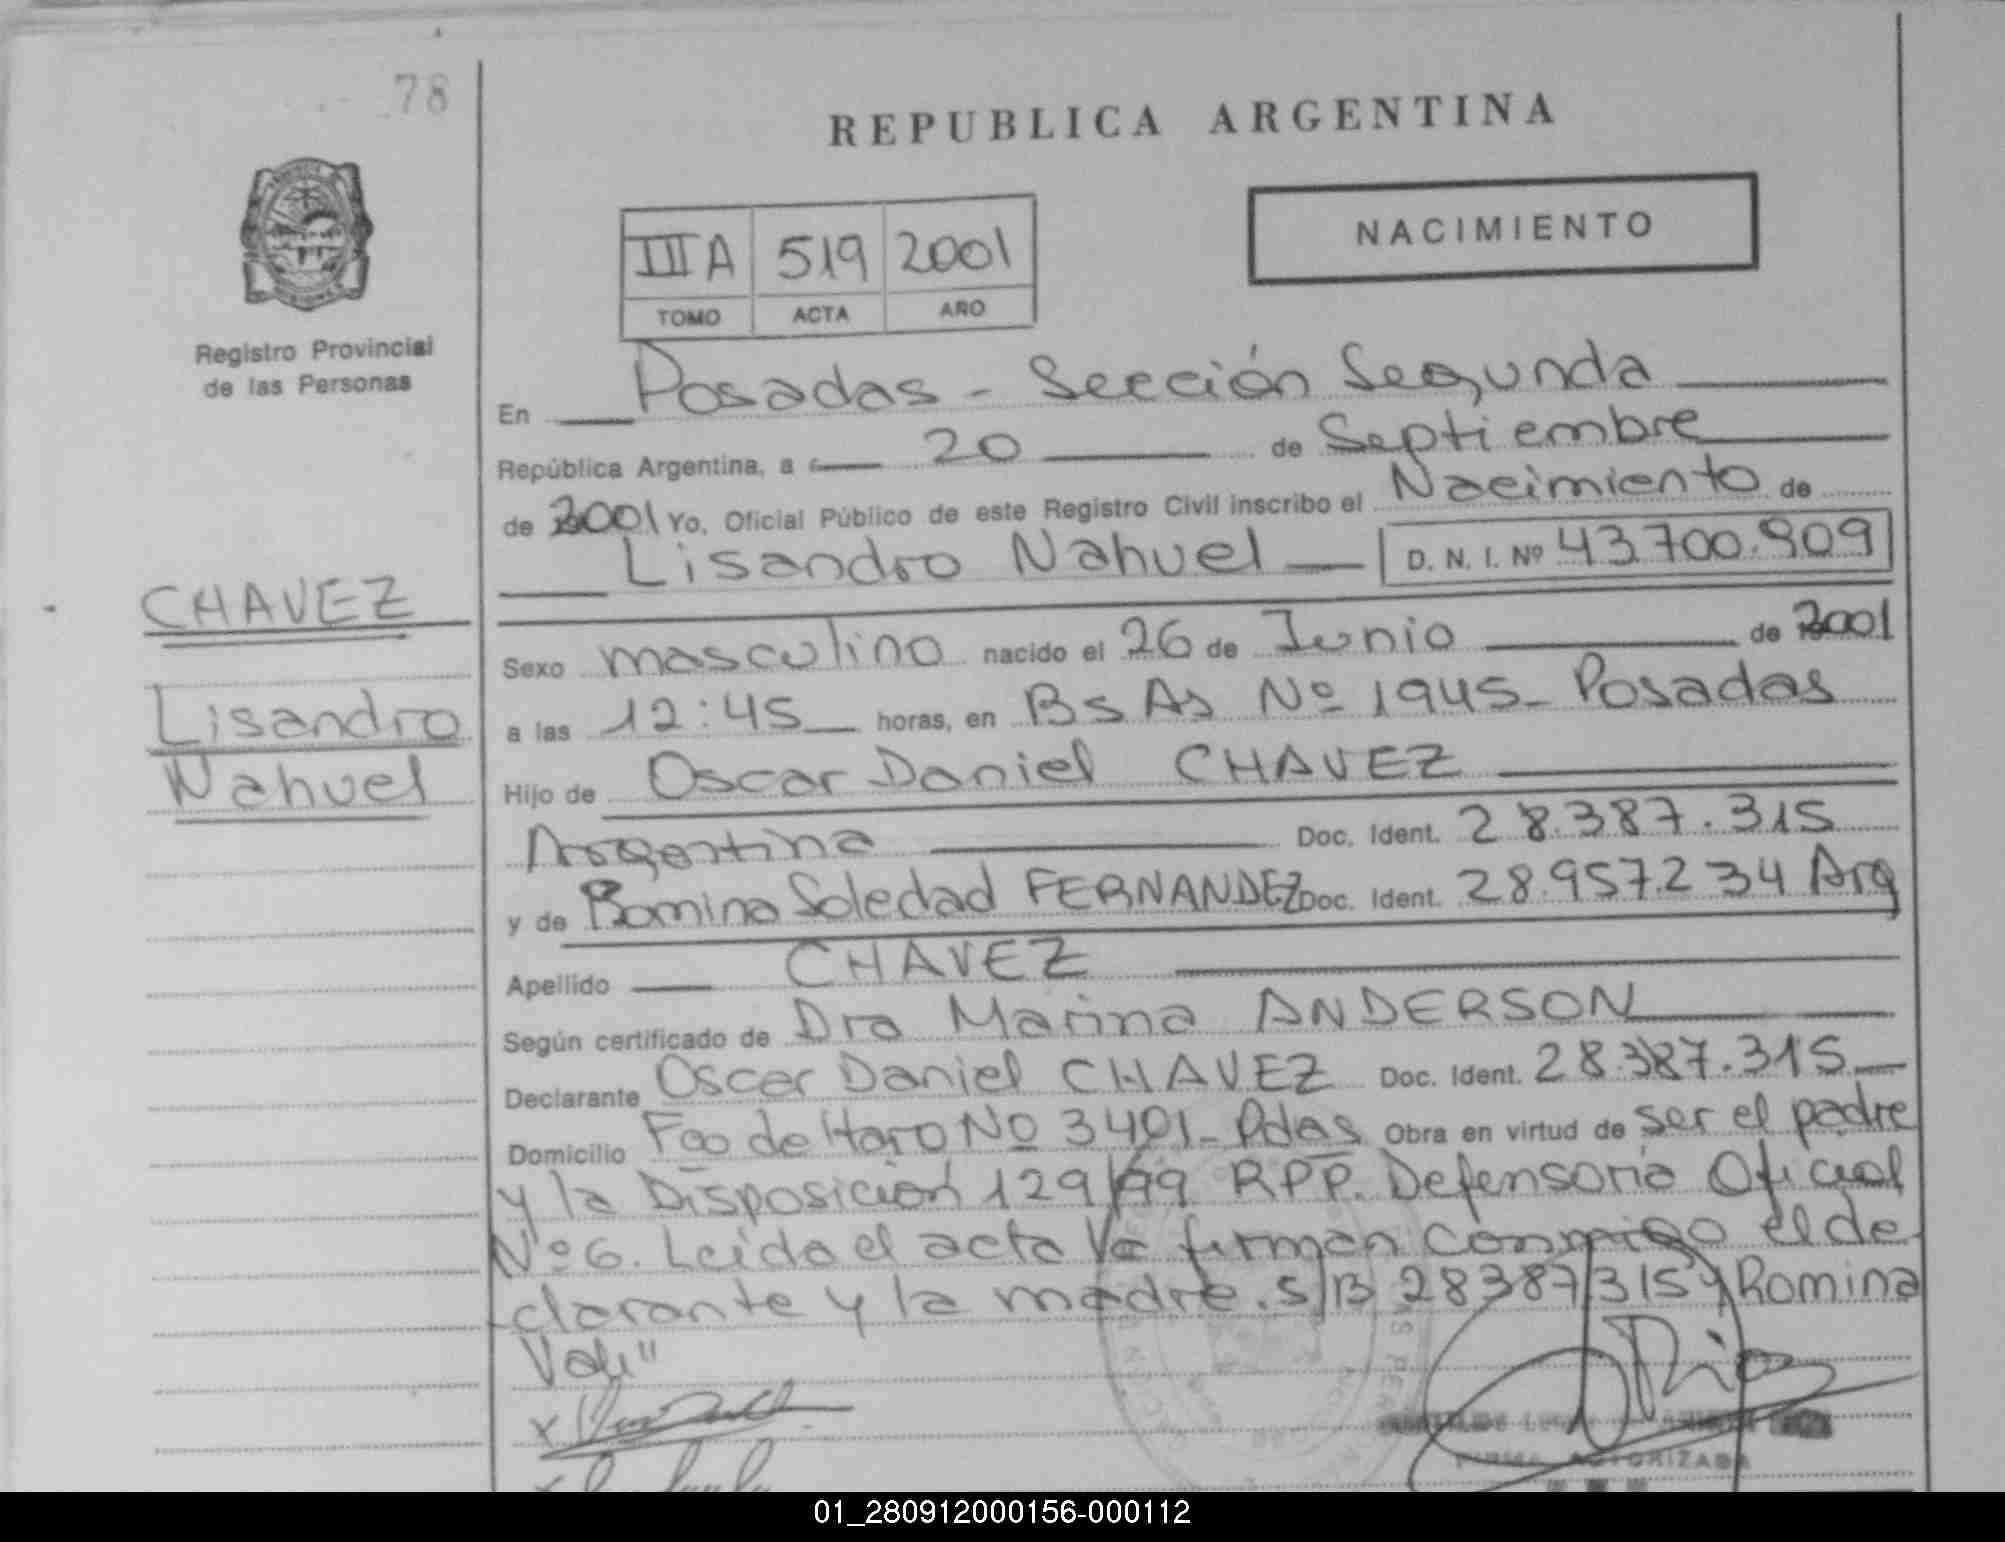 78
REPUBLICA ARGENTINA
NACIMIENTO
III A 519 2001
TOMO ACTA AÑO
Registro Provincial
de las Personas
CHAVEZ
Lisandro
Nahuel
En Posadas - Sección Segunda
República Argentina, a 20 de Septiembre
de 2001 Yo, Oficial Público de este Registro Civil inscribo el Nacimiento de
Lisandro Nahuel D. N. I. Nº 43.700.909
Sexo masculino nacido el 26 de Junio de 2001
a las 12:45 horas, en Bs As Nº 1945 - Posadas
Hijo de Oscar Daniel CHAVEZ
Argentina Doc. Ident. 28.387.315
y de Romina Soledad FERNANDEZ Doc. Ident. 28.957.234 Arg
Apellido CHAVEZ
Según certificado de Dra Marina ANDERSON
Declarante Oscar Daniel CHAVEZ Doc. Ident. 28.387.315
Domicilio Fco de Haro Nº 3401 - Pdas Obra en virtud de ser el padre
y la Disposición 129/99 RPP. Defensoria Oficial
Nº 6. Leida el acta la firman conmigo el de
clarante y la madre. S/B 28387315 y Romina
Vale"
FIRMA AUTORIZADA
01_280912000156-000112